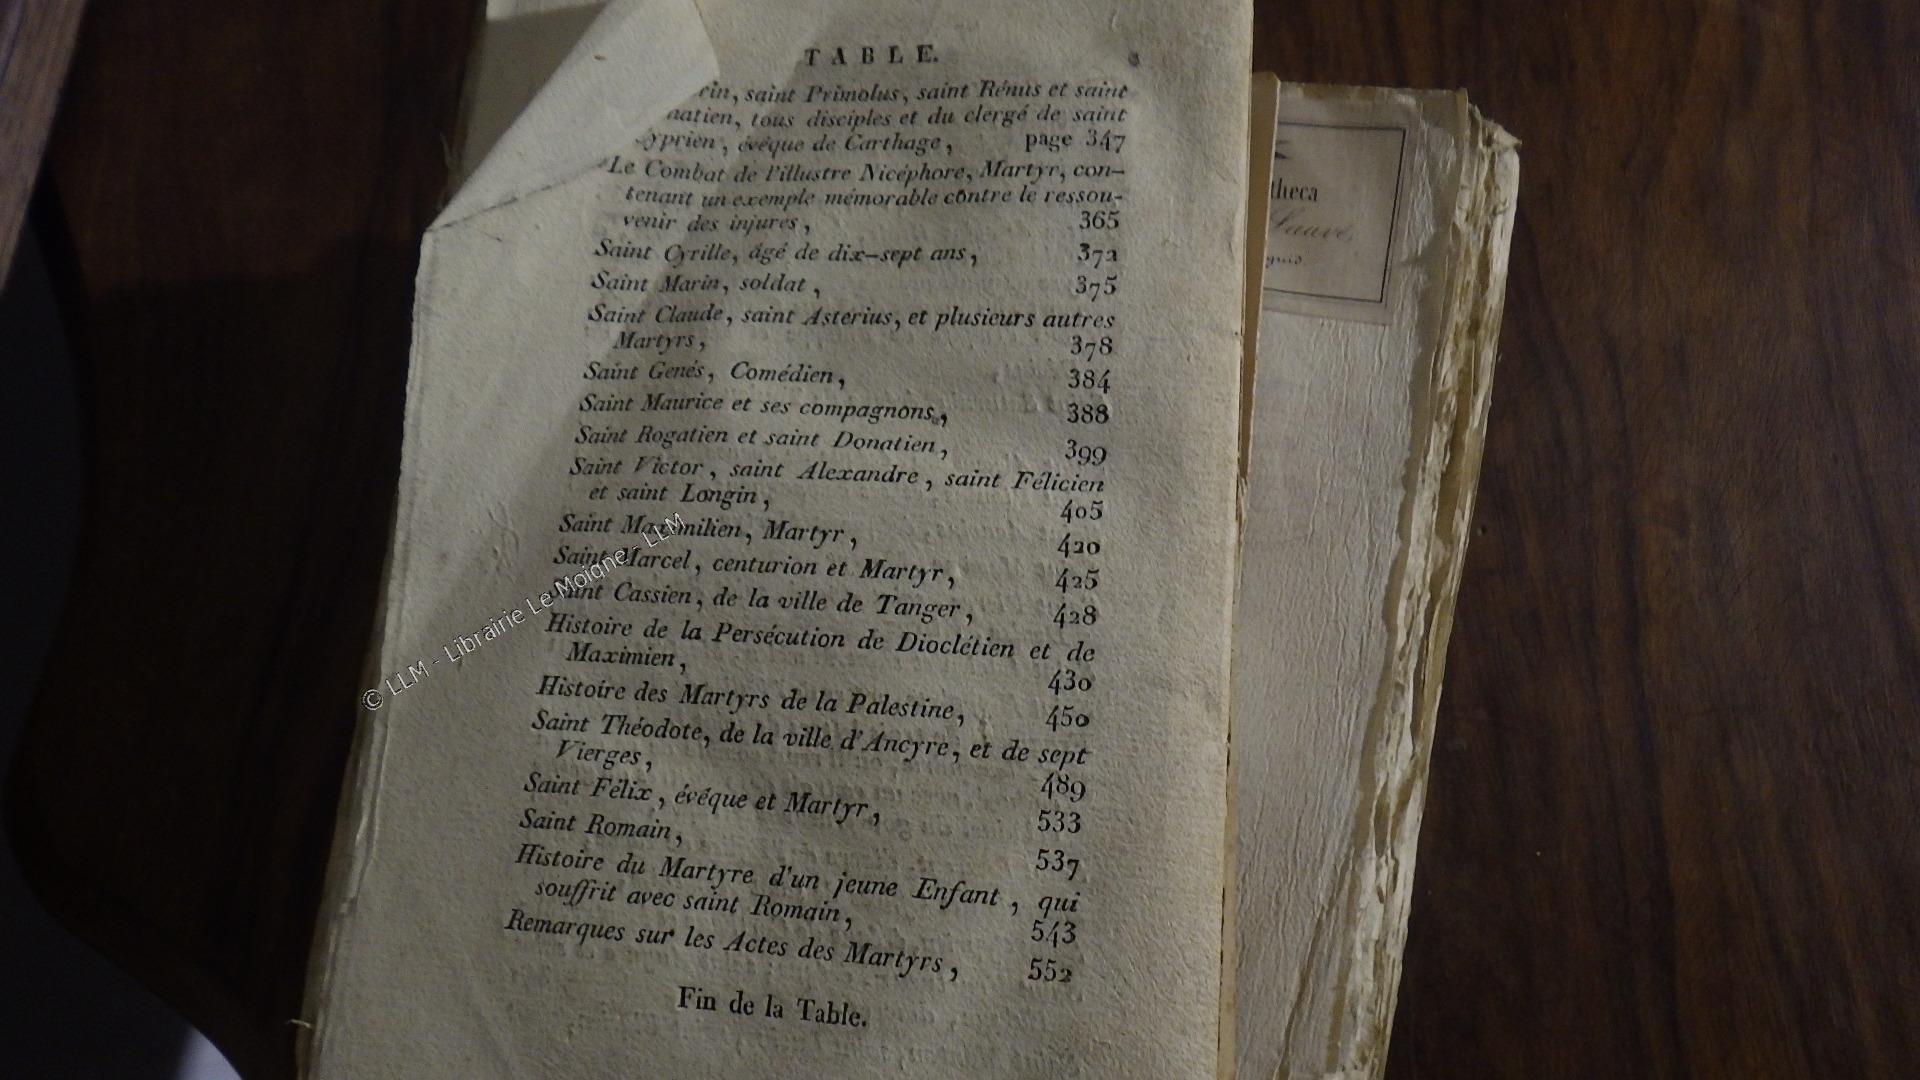 TABLE.
rin, saint Primolus, saint Rénus et saint
natien, tous disciples et du clergé de saint
yprien, évêque de Carthage, page 347
Le Combat de l'illustre Nicéphore, Martyr, con-
tenant un exemple mémorable contre le ressou-
venir des injures, 365
Saint Cyrille, âgé de dix-sept ans, 372
Saint Marin, soldat, 375
Saint Claude, saint Asterius, et plusieurs autres
Martyrs, 378
Saint Genès, Comédien, 384
Saint Maurice et ses compagnons, 388
Saint Rogatien et saint Donatien, 399
Saint Victor, saint Alexandre, saint Félicien
et saint Longin, 405
Saint Maximilien, Martyr, 420
Saint Marcel, centurion et Martyr, 425
Saint Cassien, de la ville de Tanger, 428
Histoire de la Persécution de Dioclétien et de
Maximien, 430
Histoire des Martyrs de la Palestine, 450
Saint Théodote, de la ville d'Ancyre, et de sept
Vierges, 489
Saint Félix, évêque et Martyr, 533
Saint Romain, 537
Histoire du Martyre d'un jeune Enfant, qui
souffrit avec saint Romain, 543
Remarques sur les Actes des Martyrs, 552
Fin de la Table.
theca
Sauve,
© LLM - Librairie Le Moiane - LLM